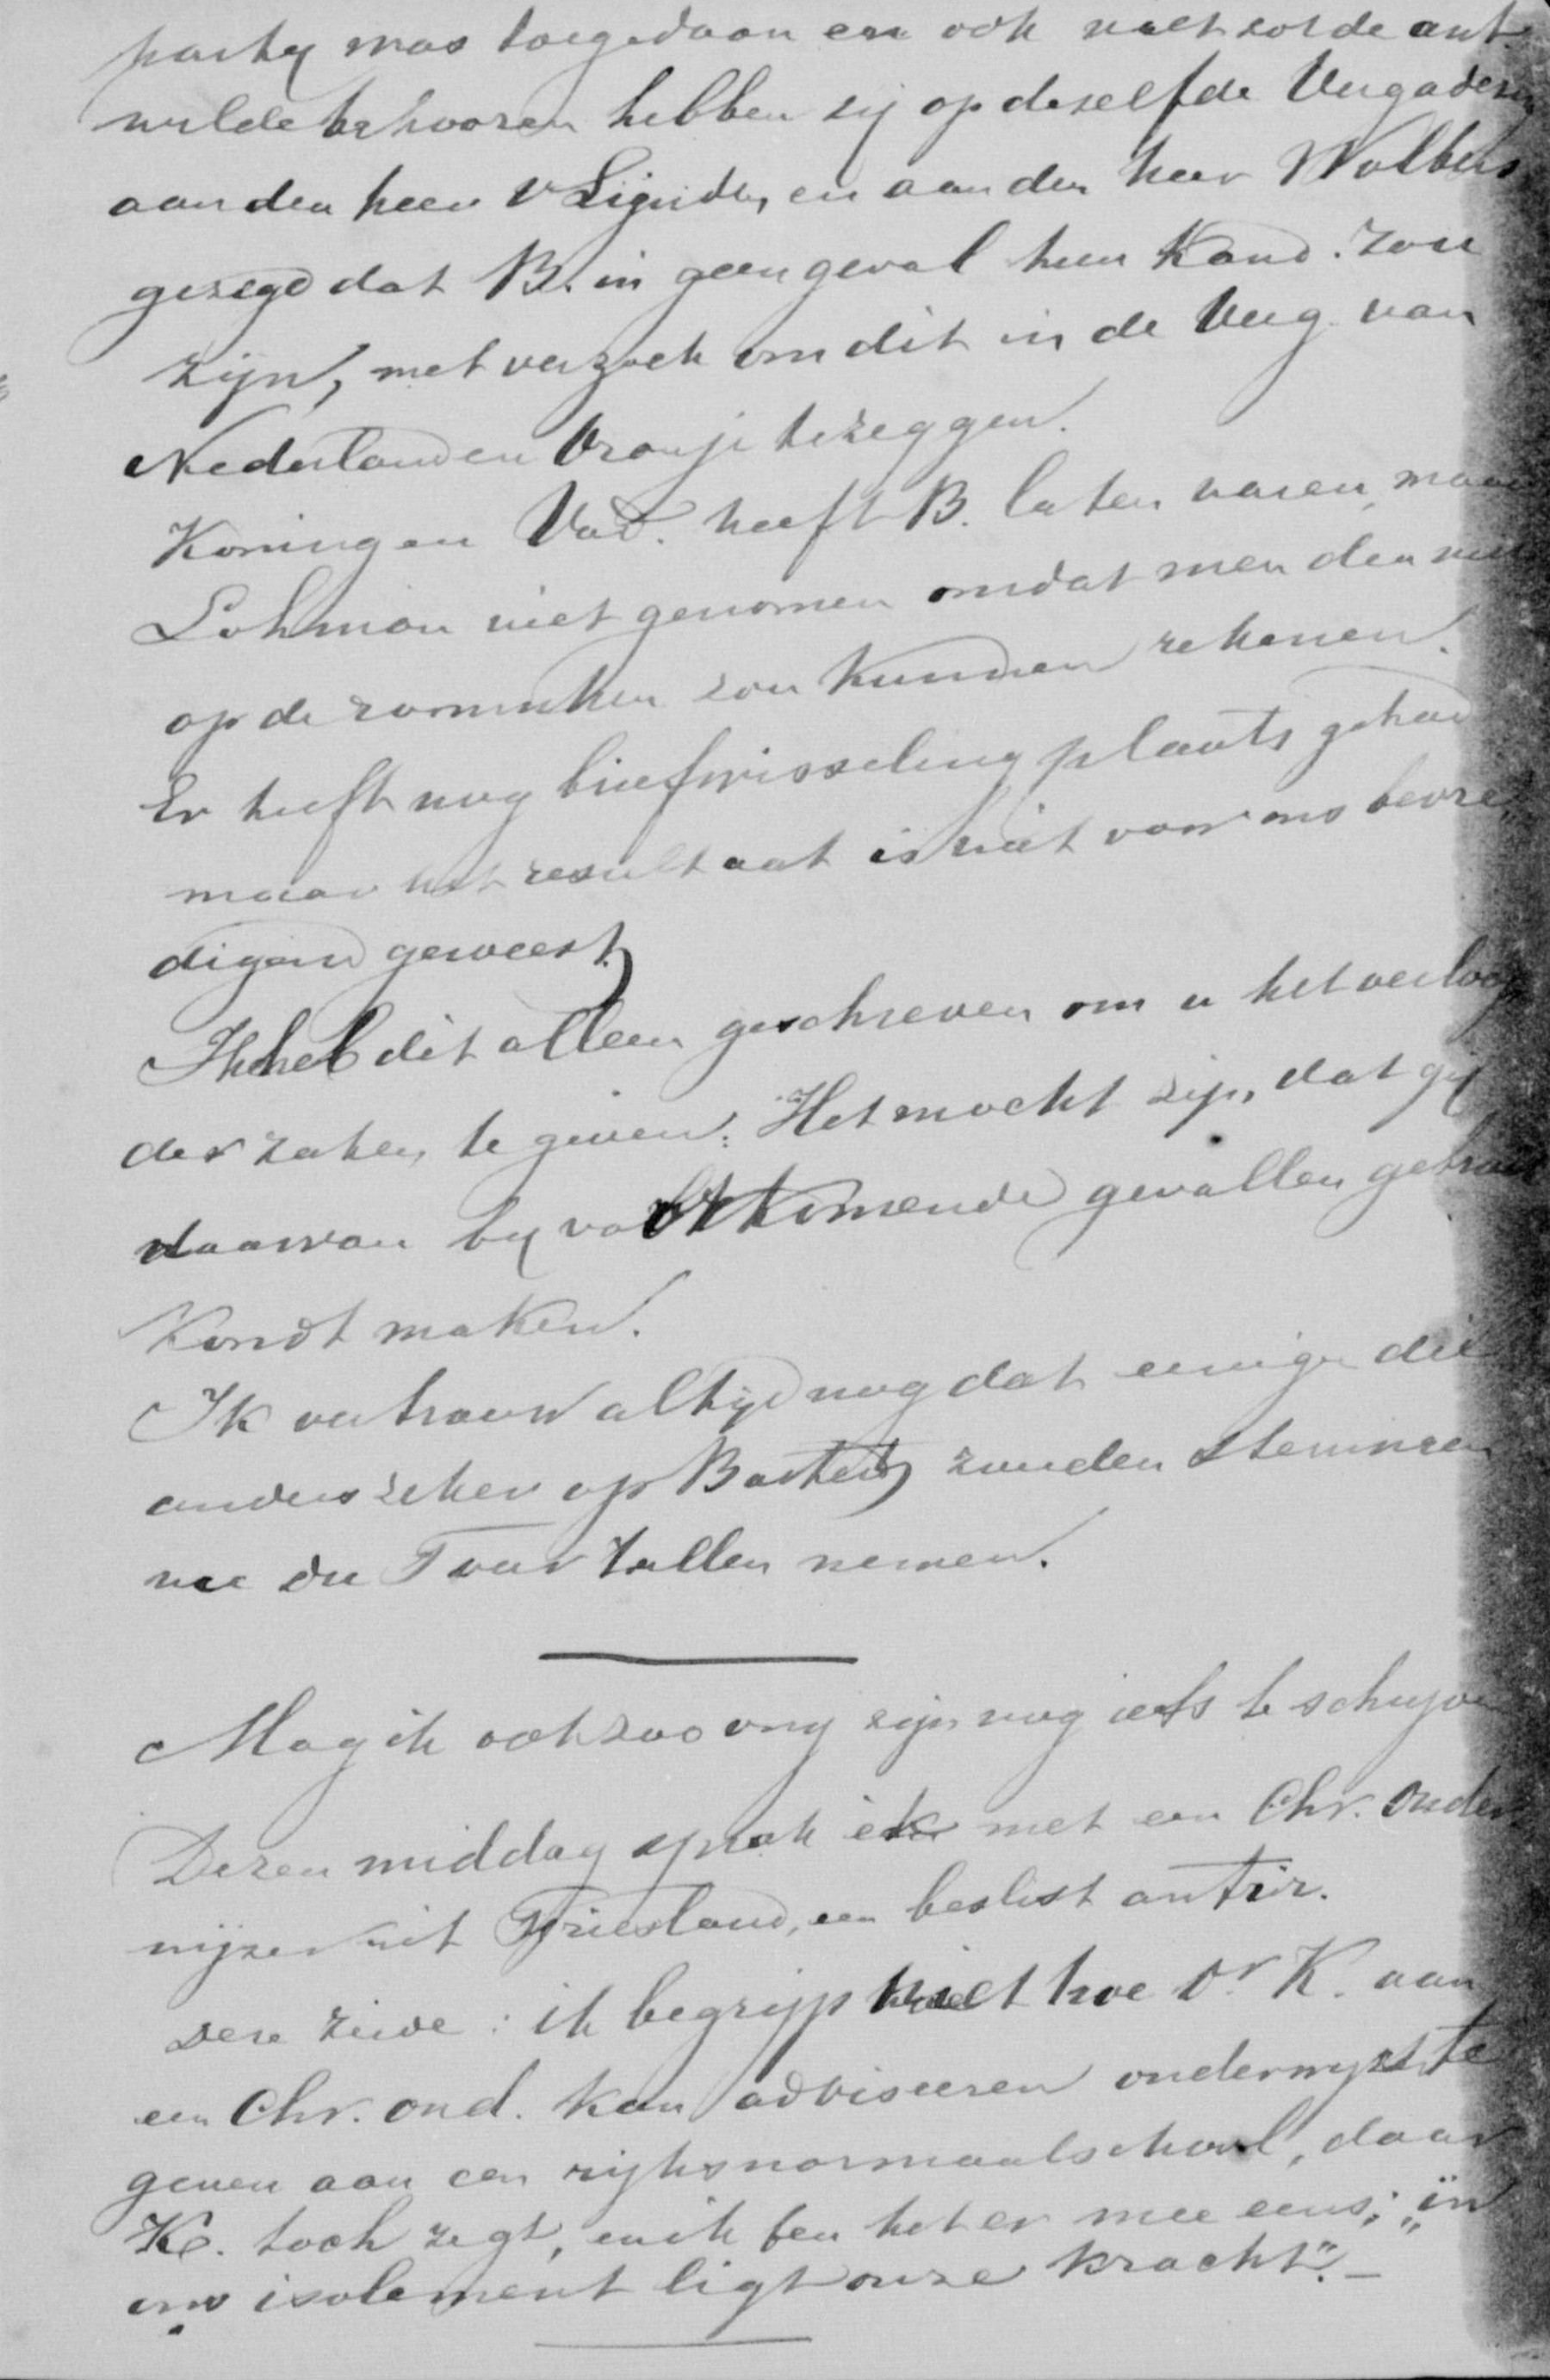 party was toegedaan en ook niet tot de ant.
wilde behooren hebben zij op dezelfde Vergadering
aan den heer v Lijnden en aan den heer Wolbers
gezegd dat B. in geen geval hun Kand. zou
zijn, met verzoek om dit in de Verg. van
Nederland en Oranje te zeggen.
Koning en Vad. heeft B. laten varen, maar
Lohman niet genomen omdat men dan niet
op de roomschen zou kunnen rekenen.
Er heeft nog briefwisseling plaats gehad
maar het resultaat is niet voor ons bevre
digend geweest.
Ik heb dit alleen geschreven om u het verloop
der zaken te geven: Het mocht zijn, dat gij
daarvan by voorkomende gevallen gebruik
kondt maken.
Ik vertrouw altijd nog dat eenige die
anders zeker op Bastert zouden stemmen
nu du Tour zullen nemen.
Mag ik ook zoo vrij zijn nog iets te schrijven
Dezen middag sprak ik met een Chr. onder
wijzer uit Friesland, een beslist antirir.
Deze zeide: ik begrijp niet hoe Dr K. aan
een Chr. ond. kan adviseeren onderwijs te
geven aan een rijksnormaalschool, daar
K. toch zegt, en ik ben het er mee eens; „in
ons isolement ligt onze kracht". –